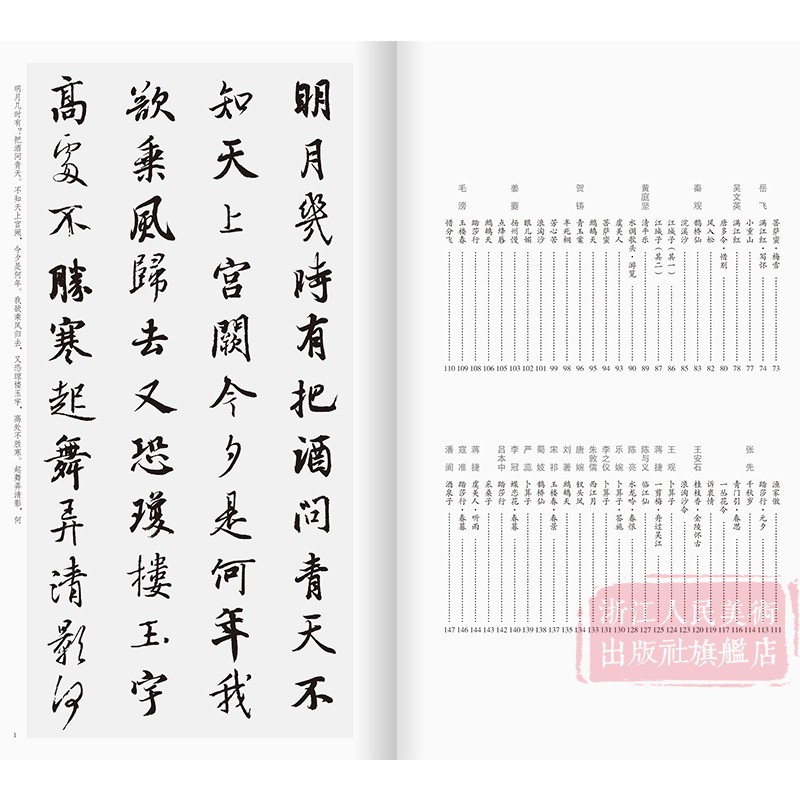 菩萨蛮·梅雪 73
岳飞 满江红·写怀 74
小重山 77
吴文英 满江红 78
唐多令·惜别 80
风入松 82
秦观 鹊桥仙 83
浣溪沙 85
江城子(其一) 86
江城子(其二) 87
黄庭坚 清平乐 89
水调歌头·游览 90
虞美人 93
菩萨蛮 94
鹧鸪天 95
贺铸 青玉案 96
半死桐 98
芳心苦 99
浪淘沙 101
眼儿媚 102
姜夔 扬州慢 103
点绛唇 105
鹧鸪天 106
踏莎行 108
毛滂 玉楼春 109
惜分飞 110
渔家傲 111
踏莎行·元夕 113
张先 千秋岁 114
青门引·春思 116
一丛花令 117
诉衷情 119
王安石 桂枝香·金陵怀古 120
浪淘沙令 123
王观 卜算子 124
蒋捷 一剪梅·舟过吴江 125
陈与义 临江仙 127
陈亮 水龙吟·春恨 128
乐婉 卜算子·答施 130
李之仪 卜算子 131
朱敦儒 西江月 133
唐婉 钗头凤 134
刘著 鹧鸪天 135
宋祁 玉楼春·春景 137
蜀妓 鹊桥仙 138
严蕊 卜算子 139
李冠 蝶恋花·春暮 140
吕本中 踏莎行 142
采桑子 143
蒋捷 虞美人·听雨 144
寇准 踏莎行·春暮 146
潘阆 酒泉子 147
浙江人民美術
出版社旗艦店
明月幾時有把酒問青天不
知天上宮闕今夕是何年我
欲乘風歸去又恐瓊樓玉宇
高處不勝寒起舞弄清影何
明月几时有?把酒问青天。不知天上宫阙,今夕是何年。我欲乘风归去,又恐琼楼玉宇,高处不胜寒。起舞弄清影,何
1